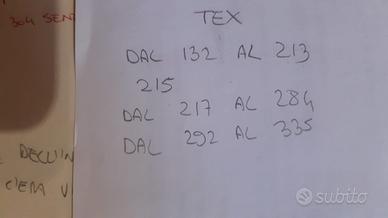 304 SENT
TEX
DAL 132 AL 213
215
DAL 217 AL 284
DAL 292 AL 335
DECLIN
C'ERA V
subito